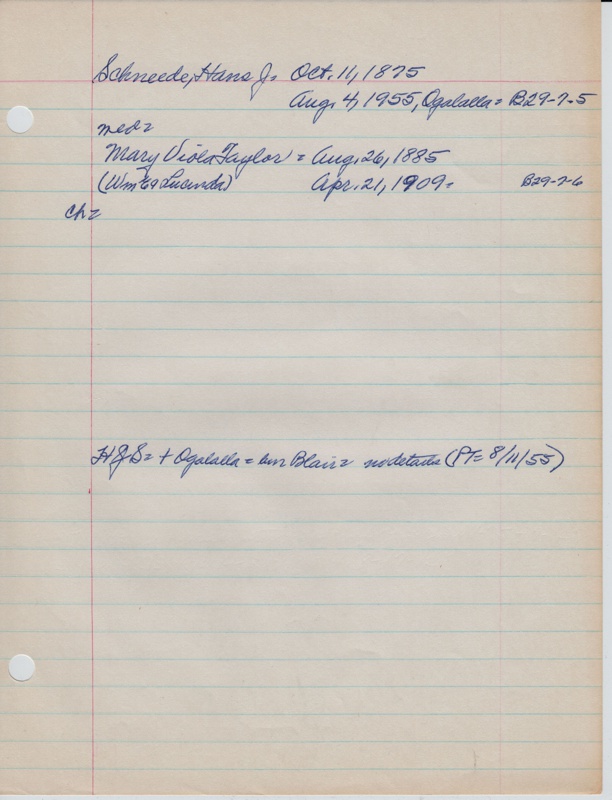 Schneede, Hans J= Oct. 11, 1875
Aug. 4, 1955, Ogalalla= B29-7-5
med=
Mary Viola Taylor = Aug. 26, 1885
(Wm & Lucinda) Apr. 21, 1909= B29-7-6
ch=
HJS= + Ogalalla = bur Blair= no details (PT= 8/11/55)